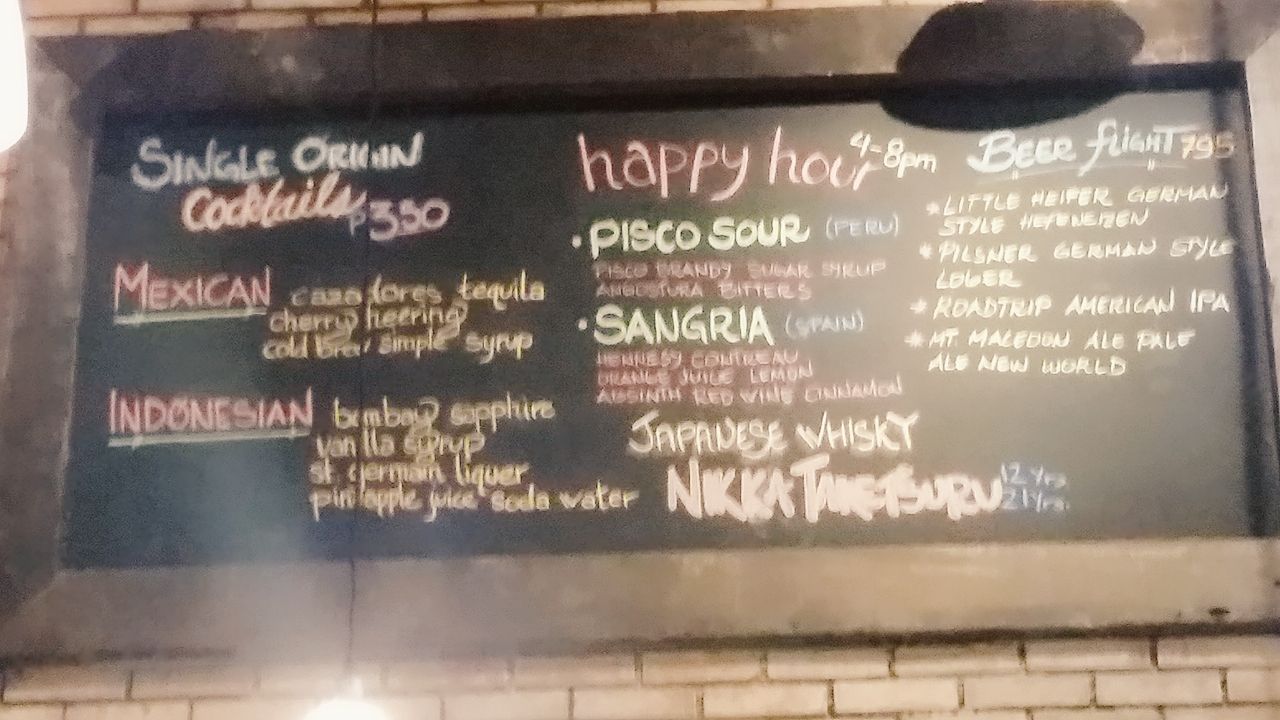 SINGLE ORIGIN
Cocktails ₱350
MEXICAN cazadores tequila
cherry heering
cold brew simple syrup
INDONESIAN bombay sapphire
vanilla syrup
st. germain liquer
pineapple juice soda water
happy hour 4-8pm
• PISCO SOUR (PERU)
PISCO BRANDY SUGAR SYRUP
ANGOSTURA BITTERS
• SANGRIA (SPAIN)
HENNESY CONTREAU
ORANGE JUICE LEMON
ABSINTH RED WINE CINNAMON
JAPANESE WHISKY
NIKKA TAKETSURU 12 Yrs.
21 Yrs.
BEER flIGHT 795
* LITTLE HEIFER GERMAN
STYLE HEFENEIZEN
* PILSNER GERMAN STYLE
LOGER
* ROADTRIP AMERICAN IPA
* MT. MACEDON ALE PALE
ALE NEW WORLD